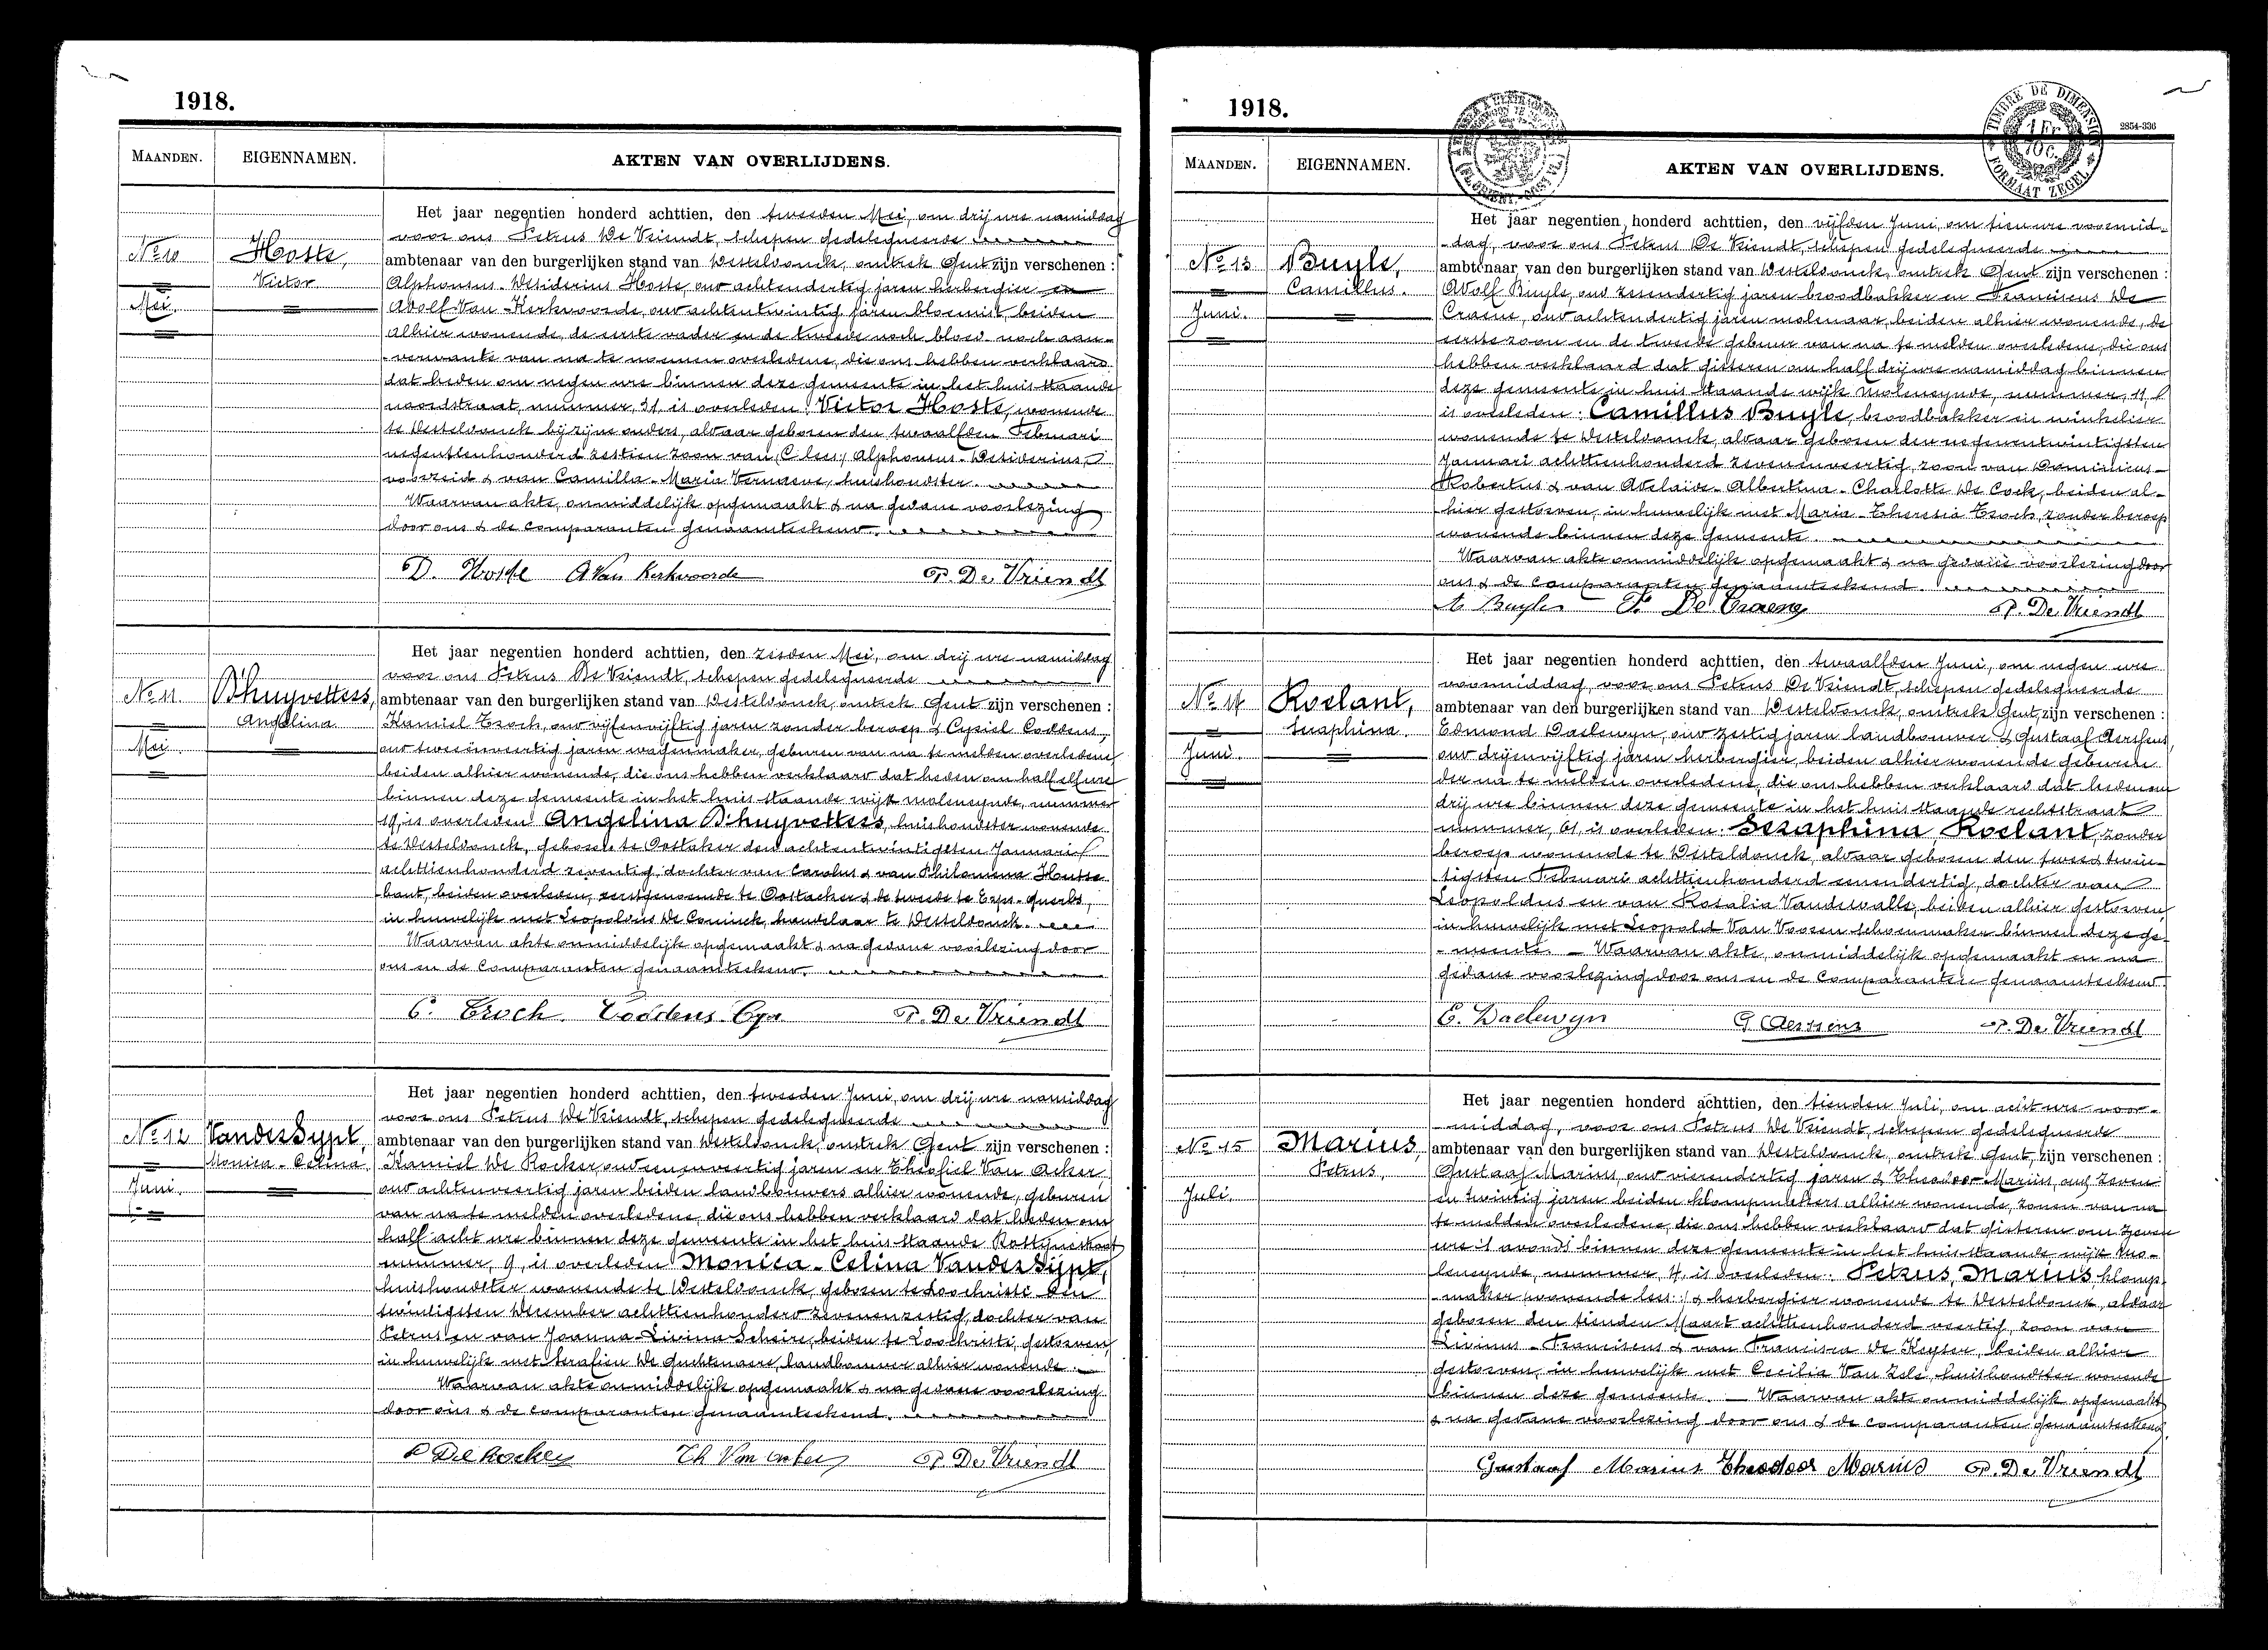 1918.
MAANDEN.
EIGENNAMEN.
AKTEN VAN OVERLIJDENS.
Het jaar negentien honderd achttien, den tweeden Mei, om drij ure namiddag
voor ons Petrus De Vriendt, schepen gedelegueerde
No 10 Hoste, ambtenaar van den burgerlijken stand van Desteldonck, omtrek Gent zijn verschenen :
Victor Alphonsus-Desiderius Hoste, oud achtendertig jaren herbergier en
Mei. Adolf Van Kerkvoorde, oud achtentwintig jaren bloemist, beiden
alhier wonende, de eerste vader en de tweede noch bloed noch aan-
verwante van na te noemen overledene, die ons hebben verklaard
dat heden om negen ure binnen deze gemeente in het huis staande
noordstraat, nummer, 31, is overleden: Victor Hoste, wonende
te Desteldonck bij zijne ouders, aldaar geboren den twaalfden Februari
negentienhonderd zestien zoon van (: lees :) Alphonsus-Desiderius,
voorzeid & van Camilla-Maria Vernaeve, huishoudster.
Waarvan akte, onmiddelijk opgemaakt & na gedane voorlezing
door ons & de comparanten genaamteekend.
D. Hoste A Van Kerkvoorde P. De Vriendt
Het jaar negentien honderd achttien, den zesden Mei, om drij ure namiddag
voor ons Petrus De Vriendt, schepen gedelegueerde
No 11 D'huyvetters, ambtenaar van den burgerlijken stand van Desteldonck, omtrek Gent zijn verschenen :
Angelina Kamiel Troch, oud vijfenvijftig jaren zonder beroep & Cyriel Coddens,
Mei. oud tweeënveertig jaren wagenmaker, geburen van na te melden overledene
beiden alhier wonende, die ons hebben verklaard dat heden om half elf ure
binnen deze gemeente in het huis staande wijk moleneynde, nummer
19, is overleden: Angelina D'huyvetters, huishoudster wonende
te Desteldonck, geboren te Oostaker den achtentwintigsten Januari
achttienhonderd zeventig, dochter van Carolus & van Philomena Hutse-
baut, beiden overleden, eerstgenoemde te Oostacker & de tweede te Erps-Querbs,
in huwelijk met Leopoldus De Coninck, handelaar te Desteldonck.
Waarvan akte onmiddelijk opgemaakt & na gedane voorlezing door
ons en de comparanten genaamteekend.
C. Troch. Coddens Cyr P. De Vriendt
Het jaar negentien honderd achttien, den tweeden Juni, om drij ure namiddag
voor ons Petrus De Vriendt, schepen gedelegueerde
No 12 Vander Sypt, ambtenaar van den burgerlijken stand van Desteldonck, omtrek Gent zijn verschenen :
Monica-Celina. Kamiel De Rocker, oud eenenveertig jaren en Theofiel Van Acker
Juni. oud achtenveertig jaren beiden landbouwers alhier wonende, geburen
van na te melden overledene, die ons hebben verklaard dat heden om
half acht ure binnen deze gemeente in het huis staande
nummer, 9, is overleden Monica-Celina Vander Sijpt,
huishoudster wonende te Desteldonck, geboren te Loochristi den
twintigsten December achttienhonderd zevenenzestig, dochter van
Petrus en van Joanna-Livina Scheire, beiden te Loochristi gestorven,
in huwelijk met Serafien De Guchtenaere, landbouwer alhier wonende.
Waarvan akte onmiddelijk opgemaakt & na gedane voorlezing
door ons & de comparanten genaamteekend.
De Rocker Th Van Acker P. De Vriendt
1918.
TIMBRE DE DIMENSION
1 Fr 10 c.
FORMAAT ZEGEL
2854-336
MAANDEN.
EIGENNAMEN.
AKTEN VAN OVERLIJDENS.
Het jaar negentien honderd achttien, den vijfden Juni, om tien ure voormid-
-dag, voor ons Petrus De Vriendt, schepen gedelegueerde
No 13 Buyle, ambtenaar van den burgerlijken stand van Desteldonck, omtrek Gent zijn verschenen :
Camillus. Adolf Buyle, oud zesendertig jaren broodbakker en Franciscus De
Juni. Craene, oud achtendertig jaren molenaar, beiden alhier wonende, de
eerste zoon en de tweede gebuur van na te melden overledene, die ons
hebben verklaard dat gisteren om half drij ure namiddag binnen
deze gemeente in huis staande wijk moleneynde, nummer, 11,
is overleden: Camillus Buyle, broodbakker en winkelier
wonende te Desteldonck, aldaar geboren den negenentwintigsten
Januari achttienhonderd zevenenveertig, zoon van Dominicus-
Robertus & van Adelaide-Albertina-Charlotte De Cock, beiden al-
hier gestorven, in huwelijk met Maria-Theresia Troch, zonder beroep
wonende binnen deze gemeente
Waarvan akte onmiddelijk opgemaakt & na gedane voorlezing door
ons & de comparanten genaamteekend.
A Buyle F. De Craene P. De Vriendt
Het jaar negentien honderd achttien, den twaalfden Juni, om negen ure
voormiddag, voor ons Petrus De Vriendt, schepen gedelegueerde
No 14 Roelant, ambtenaar van den burgerlijken stand van Desteldonck, omtrek Gent, zijn verschenen :
Seraphina. Edmond Daelewyn, oud zestig jaren landbouwer & Gustaaf Aerssens,
Juni. oud drijenvijftig jaren herbergier, beiden alhier wonende geburen
der na te melden overledene, die ons hebben verklaard dat heden om
drij ure binnen deze gemeente in het huis staande rechtstraat
nummer, 61, is overleden: Seraphina Roelant, zonder
beroep wonende te Desteldonck, aldaar geboren den twee & twin-
tigsten Februari achttienhonderd eenendertig, dochter van
Leopoldus en van Rosalia Vandewalle, beiden alhier gestorven,
in huwelijk met Leopold Van Vooren schoenmaker binnen deze ge-
-meente. — Waarvan akte, onmiddelijk opgemaakt en na
gedane voorlezing door ons en de comparanten genaamteekend.
E. Daelewyn G Aerssens P. De Vriendt
Het jaar negentien honderd achttien, den tienden Juli, om acht ure voor-
middag, voor ons Petrus De Vriendt, schepen gedelegueerde
No 15 Marius, ambtenaar van den burgerlijken stand van Desteldonck, omtrek Gent, zijn verschenen :
Petrus. Gustaaf Marius, oud vierendertig jaren & Theodoor Marius, oud zeven
Juli. en twintig jaren beiden klompmakers alhier wonende, zonen van na
te melden overledene, die ons hebben verklaard dat gisteren om zeven
ure 's avonds binnen deze gemeente in het huis staande wijk mo-
leneynde, nummer, 4, is overleden: Petrus Marius, klomp-
maker wonende lees :) & herbergier wonende te Desteldonck, aldaar
geboren den tienden Maart achttienhonderd veertig, zoon van
Livinus-Franciscus & van Francisca De Keyser, beiden alhier
gestorven, in huwelijk met Cecilia Van Zele, huishoudster wonende
binnen deze gemeente. — Waarvan akte onmiddelijk opgemaakt
& na gedane voorlezing door ons & de comparanten genaamteekend.
Gustaaf Marius Theodoor Marius P. De Vriendt